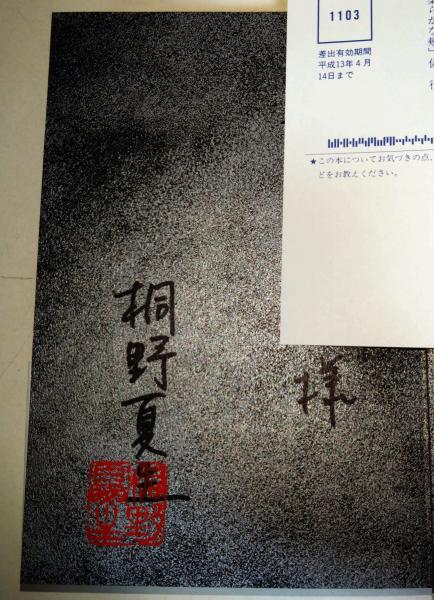 1103
差出有効期間
平成13年４月
14日まで
らかな頰」係　行
★この本についてお気づきの点、
どをお教えください。
様
桐野夏生
桐野夏生